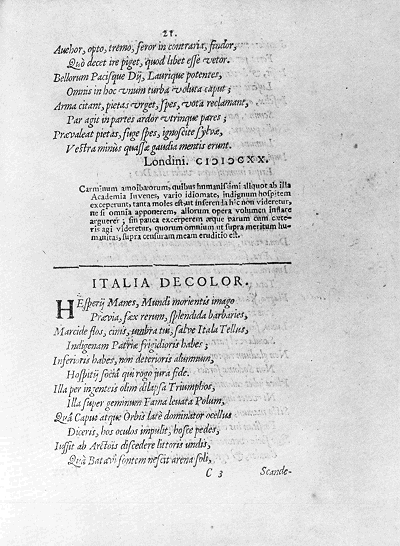 21.
Auehor, opto, tremo, feror in contraria, studor,
Quò decet ire piget, quod libet esse vetor.
Bellorum Pacisque Dij, Laurique potentes,
Omnis in hoc vnum turba voluta caput;
Arma citant, pietas vrget, spes, vota reclamant,
Par agit in partes ardor vtrinque pares;
Prævaleat pietas, fuge spes, ignoscite sylvæ,
Vestra minùs quassæ gaudia mentis erunt.
Londini. CIↃIↃCXX.
Carminum amoibæorum, quibus humanissimi aliquot ab illa
Academia Iuvenes, vario idiomate, indignum hospitem
exceperunt, tanta moles est, ut inferenda hîc non videretur,
ne si omnia apponerem, aliorum opera volumen inflare
arguerer; sin pauca excerperem æque parum cum cæte-
ris agi videretur, quorum omnium ut supra meritum hu-
manitas, supra censuram meam eruditio est.
ITALIA DECOLOR.
HEsperij Manes, Mundi morientis imago
Prævia, fæx rerum, splendida barbaries,
Marcide flos, cinis, umbra tui, salve Itala Tellus,
Indigenam Patriæ frigidioris habes;
Inferioris habes, non deterioris alumnum,
Hospitij sociâ qui rogo jura fide.
Illa per ingenteis olim dilapsa Triumphos,
Illa super geminum Fama levata Polum,
Quâ Caput atque Orbis latè dominator ocellus
Diceris, hos oculos impulit, hosce pedes,
Iussit ab Arctois discedere littoris undis,
Quà Batavûm fontem nescit arena soli,
C 3
Scande-